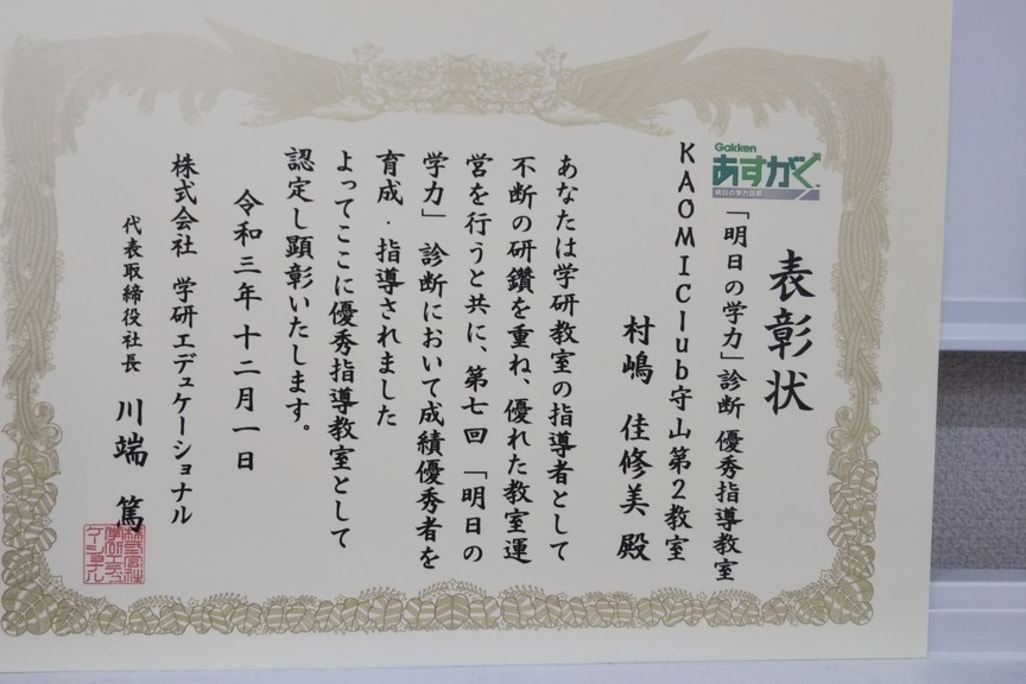 表彰状
Gakken
あすがく
明日の学力診断
「明日の学力」診断 優秀指導教室
KAOMIClub守山第2教室
村嶋 佳修美 殿
あなたは学研教室の指導者として
不断の研鑽を重ね、優れた教室運
営を行うと共に、第七回「明日の
学力」診断において成績優秀者を
育成・指導されました
よってここに優秀指導教室として
認定し顕彰いたします。
令和三年十二月一日
株式会社 学研エデュケーショナル
代表取締役社長 川端 篤
株式会社
学研エデュ
ケーショナル